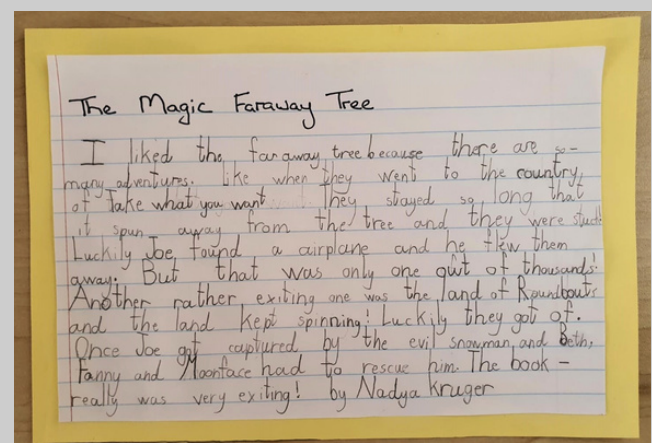 The Magic Faraway Tree
I liked the faraway tree because there are so-
many adventures. Like when they went to the country,
of Take what you want They stayed so long that
it spun away from the tree and they were stuck!
Luckily Joe, found a airplane and he flew them
away. But that was only one out of thousands!
Another rather exiting one was the land of Roundbouts
and the land kept spinning! Luckily they got of.
Once Joe got captured by the evil snowman, and Beth,
Fanny and Moonface had to rescue him. The book -
really was very exiting! by Nadya Kruger